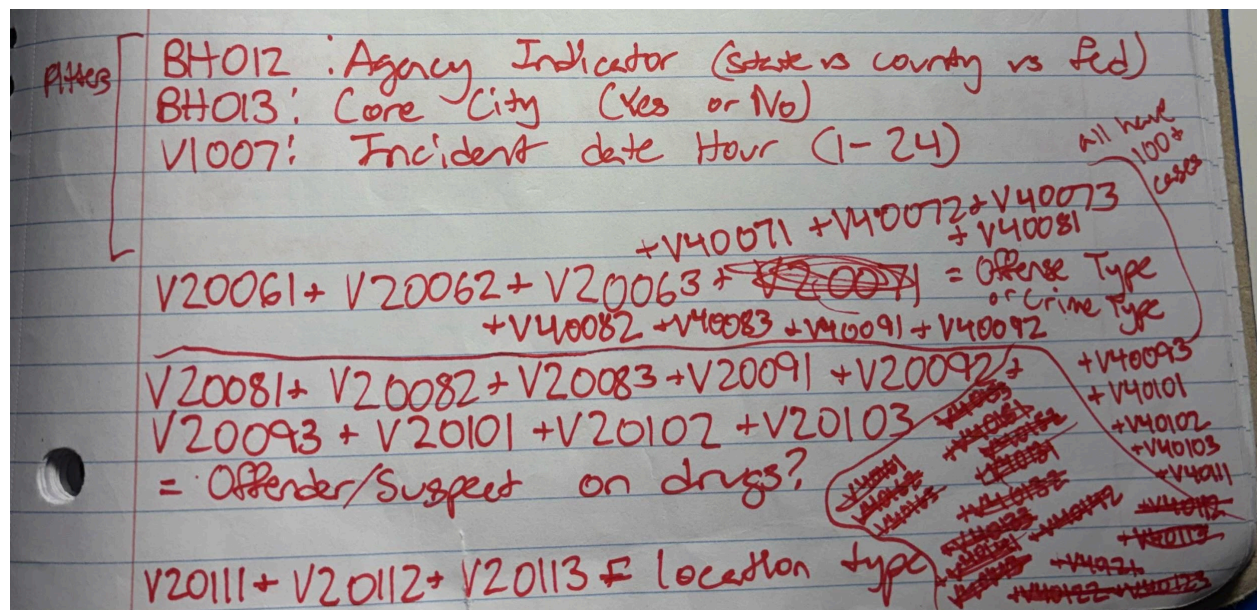 Filters
BH012 : Agency Indicator (state vs county vs fed)
BH013: Core City (Yes or No)
V1007: Incident date Hour (1-24)
all have
100+
cases
+V40071 +V40072+V40073
+V40081
V20061+ V20062+V20063+ = Offense Type
or Crime Type
+V40082 +V40083 +V40091+V40092
+V40093
+V40101
+V40102
+V40103
+V40111
V20081+ V20082+V20083+V20091 +V20092+
V20093 + V20101 +V20102 +V20103
= Offender/Suspect on drugs?
V20111+ V20112+ V20113 = location type